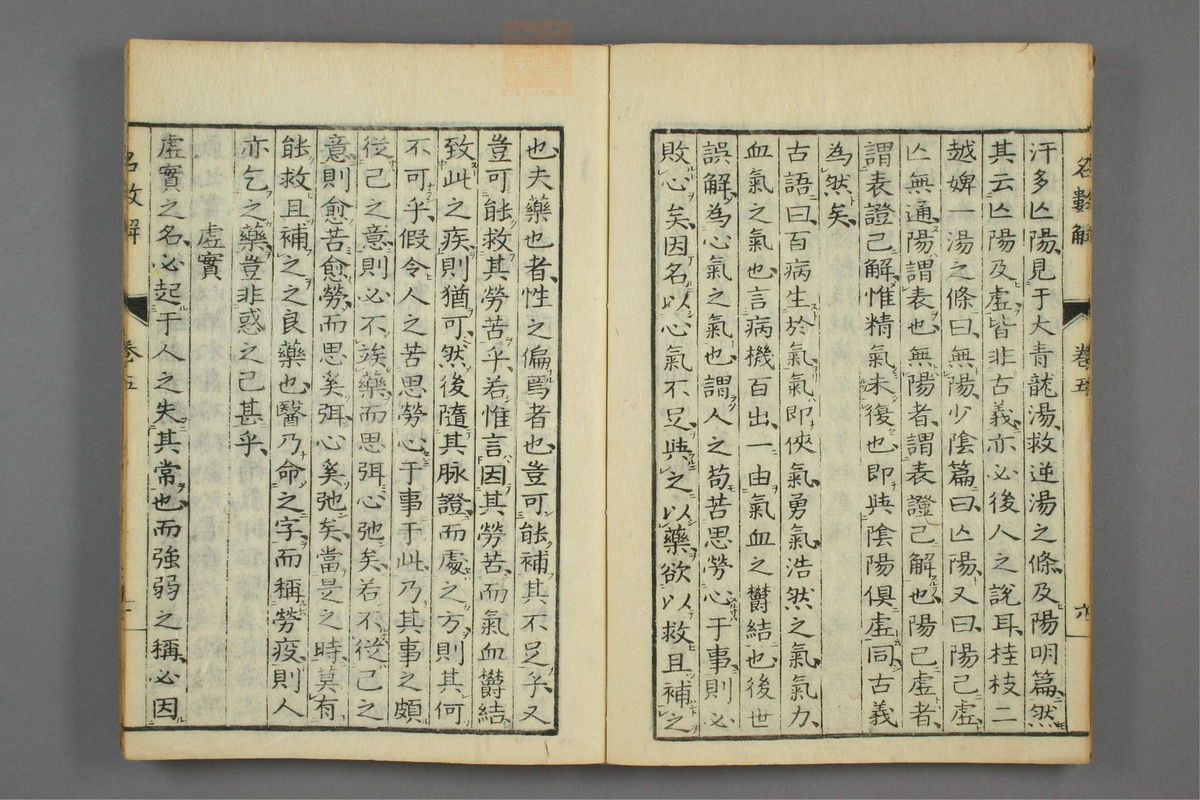 名數解 卷五 六
汗多亾陽、見于大青龍湯、救逆湯之條、及陽明篇、然
其云亾陽及虛、皆非古義、亦必後人之說耳、桂枝二
越婢一湯之條曰、無陽、少陰篇曰、亾陽、又曰、陽已虛、
亾無通、陽謂表也、無陽者、謂表證已解也、陽已虛者、
謂表證已解、惟精氣未復也、即與陰陽俱虛同、古義
為然矣、
古語曰、百病生於氣、氣即俠氣勇氣浩然之氣氣力、
血氣之氣也、言病機百出、一由氣血之鬱結也、後世
誤解、為心氣之氣也、謂人之苟苦思勞心于事、則必
敗心矣、因名以心氣不足、與之以藥、欲以救且補之
也、夫藥也者、性之偏焉者也、豈可能補其不足乎、又
豈可能救其勞苦乎、若惟言因其勞苦、而氣血鬱結
致此之疾、則猶可、然後隨其脉證、而處之方、則其何
不可乎、假令人之苦思勞心于事、于此乃其事之頗
從己之意、則必不竢藥而思弭心弛矣、若不從己之
意、則愈苦愈勞、而思奚弭、心奚弛矣、當是之時、莫有
能救且補之之良藥也、醫乃命之字而稱勞疫、則人
亦乞之藥、豈非惑之已甚乎、
虛實
虛實之名、必起于人之失其常也、而強弱之稱、必因
名數解 卷五